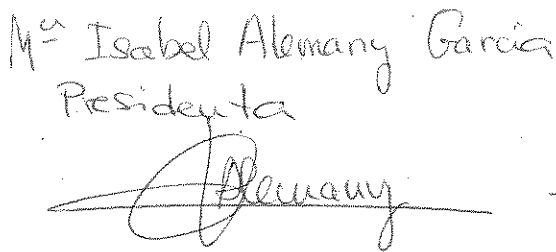 Mª Isabel Alemany Garcia
Presidenta
Alemany